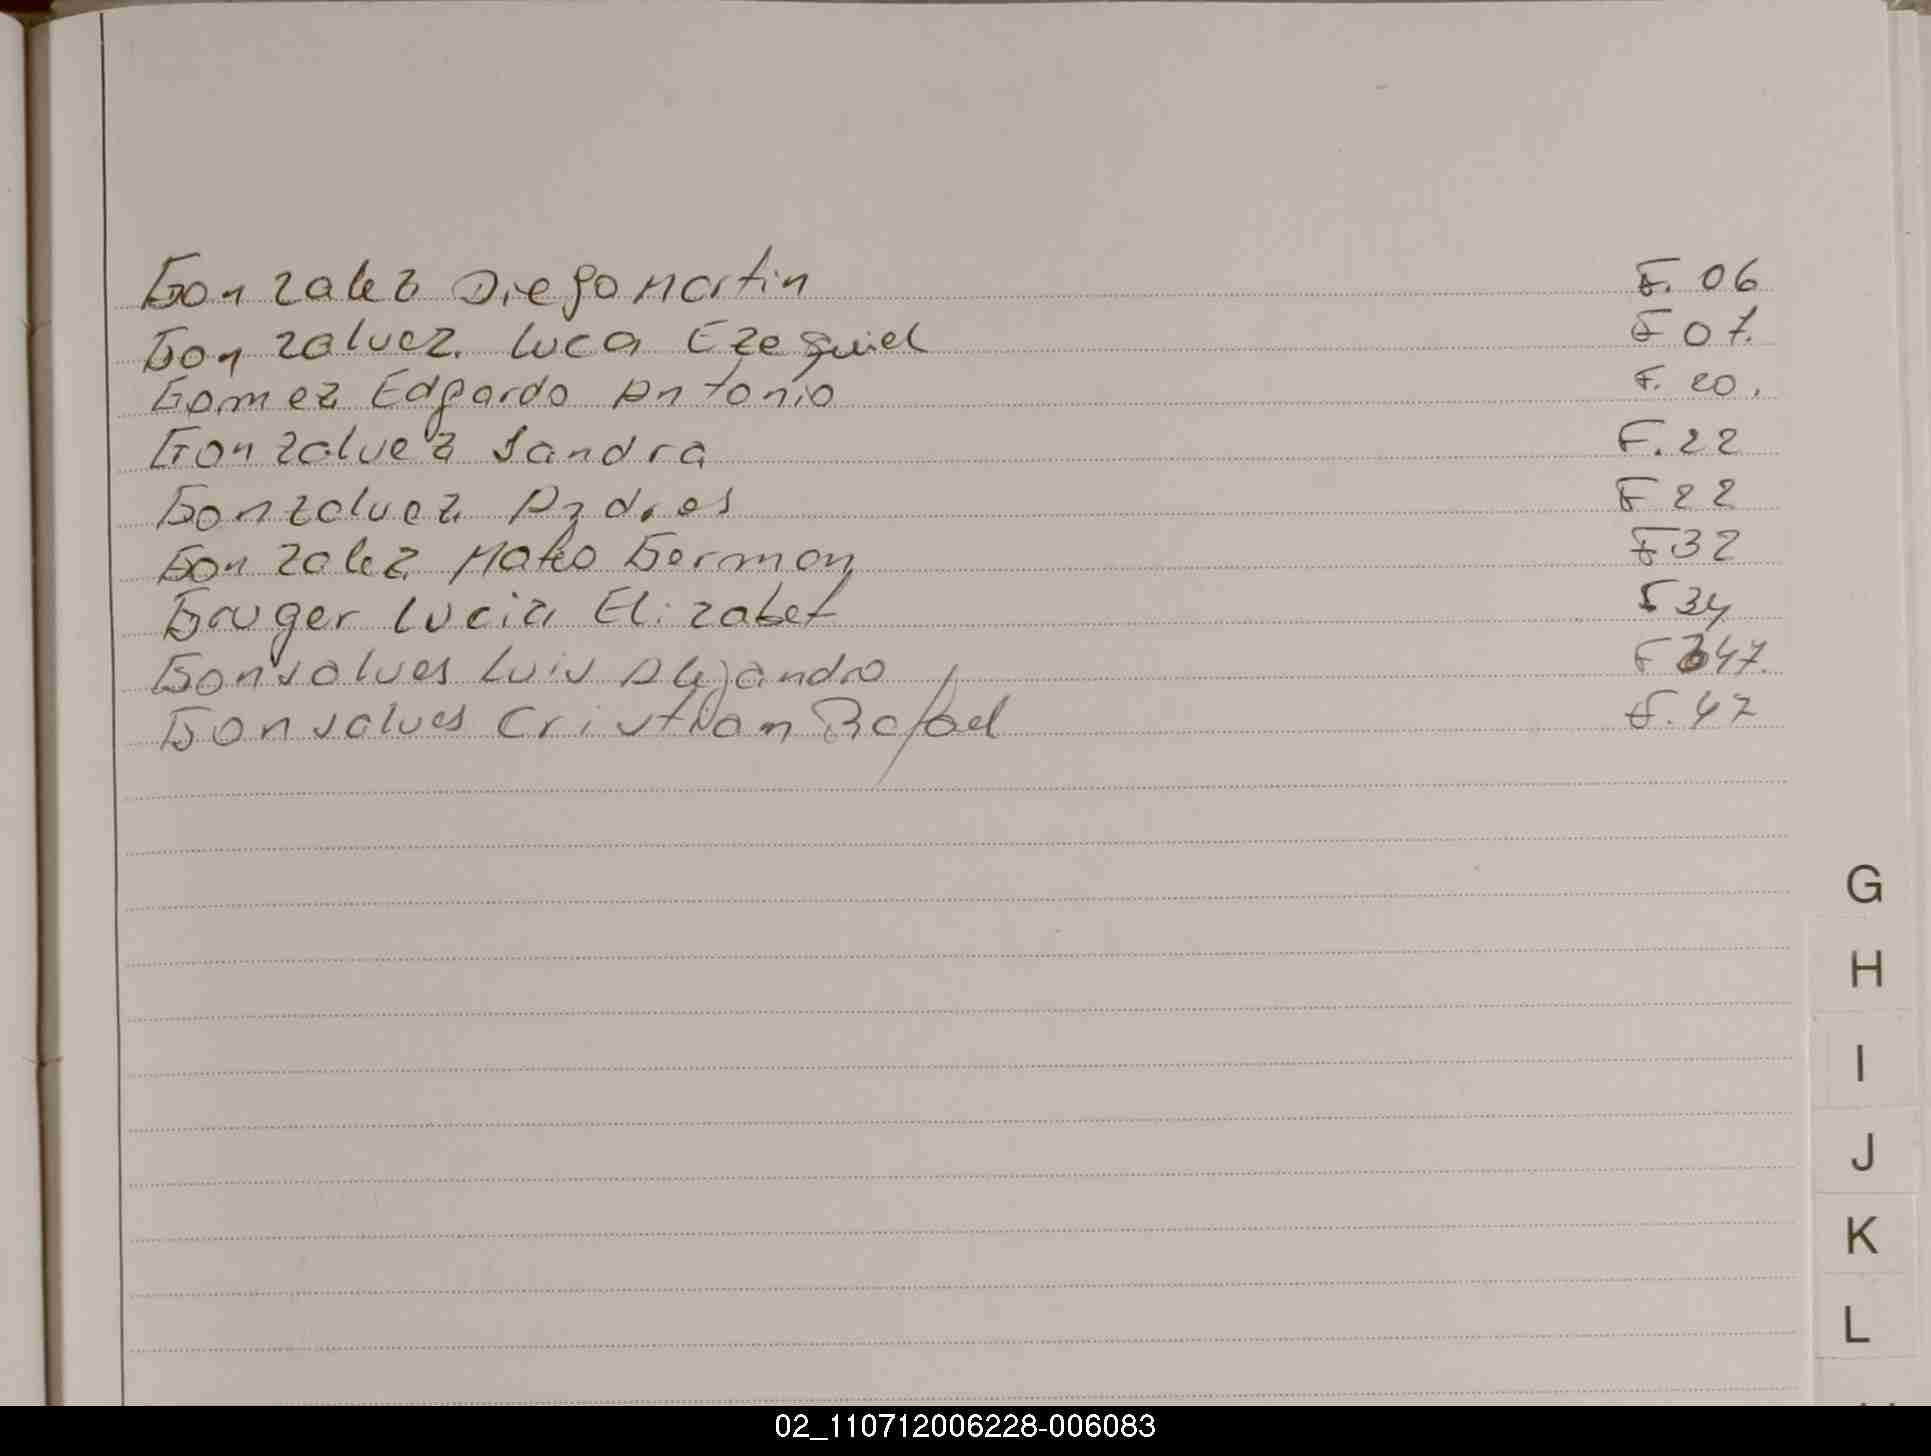 Gonzalez Diego Martin F. 06
Gonzalvez. Luca Ezequiel F 07.
Gomez Edgardo Antonio F. 20.
Gonzalvez Sandra F. 22
Gonzalvez Andres F 22
Gonzalez Mateo German F 32
Gauger Lucia Elizabet F 34
Gonsalves Luis Alejandro F 47.
Gonsalves Cristhian Rafael F. 47
G
H
I
J
K
L
02_110712006228-006083